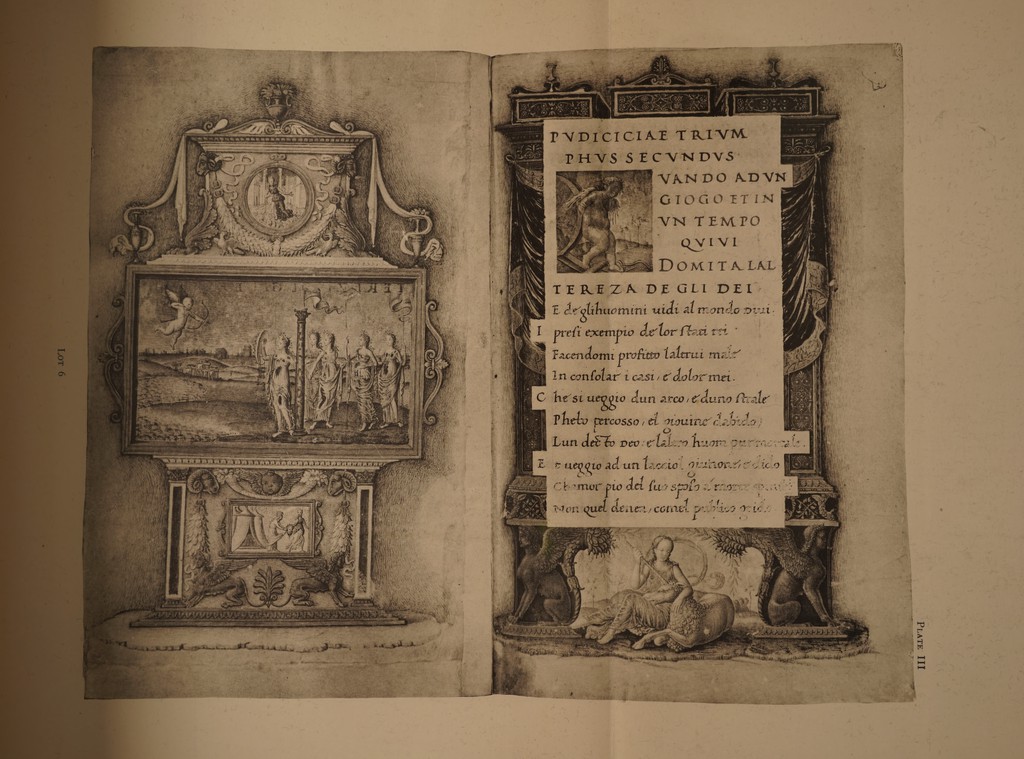 LOT 6
PVDICICIAE TRIVM
PHVS SECVNDVS
VANDO ADVN
GIOGO ET IN
VN TEMPO
QVIVI
DOMITA LAL
TEREZA DE GLI DEI
E de glihuomini uidi al mondo diui.
I presi exempio de lor stati rei
Facendomi profitto laltrui male
In consolar i casi, e dolor mei.
C he si ueggio dun arco, e duno strale
Phebo percosso, el giouine dabido,
Lun decto Deo, e laltro huom
E t ueggio ad un lacciol giunone e dido
Chamor pio del suo sposo a morte
Non quel denea, comel publico grido.
PLATE III